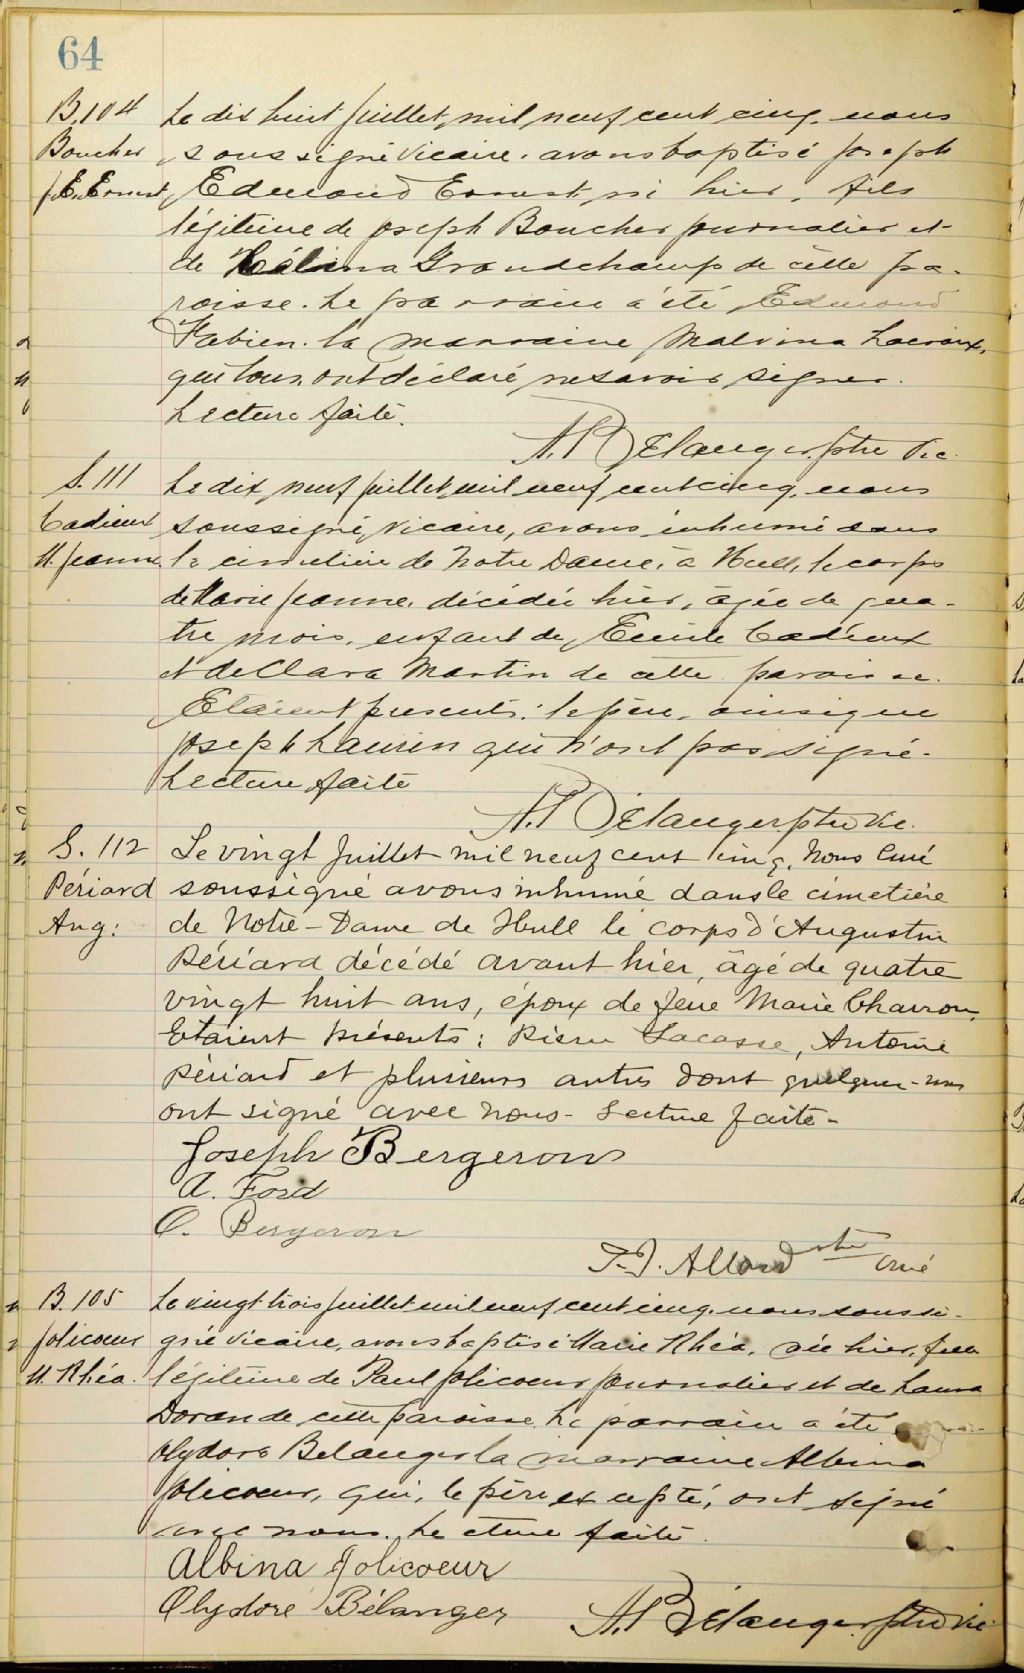 64
B. 104
Boucher
J. E. Ernest
Le dix huit juillet, mil neuf cent cinq, nous
soussigné Vicaire, avons baptisé Joseph
Edmond Ernest, né hier, fils
légitime de Joseph Boucher journalier et
de Célina Grandchamp de cette pa-
roisse. Le parrain a été Edmond
Fabien la marraine Malvina Lacroix,
qui tous ont déclaré ne savoir signer.
Lecture faite.
A. Bélanger, ptre Vic.
S. 111
Cadieux
M. Jeanne
Le dix neuf juillet, mil neuf cent cinq, nous
soussigné, vicaire, avons inhumé dans
le cimetière de Notre Dame, à Hull, le corps
de Marie Jeanne, décédée hier, âgée de qua-
tre mois, enfant de Emile Cadieux
et de Clara Martin de cette paroisse.
Etaient presents: le père, ainsi que
Joseph Laurin qui n'ont pas signé.
Lecture faite
A. Bélanger ptre Vic.
S. 112
Périard
Aug:
Le vingt Juillet mil neuf cent cinq, Nous Curé
soussigné avons inhumé dans le cimetière
de Notre-Dame de Hull le corps d'Augustin
Périard décédé avant hier, âgé de quatre
vingt huit ans, époux de feue Marie Charron.
Etaient présents: Pierre Lacasse, Antoine
Périard et plusieurs autres dont quelques-uns
ont signé avec nous- Lecture faite-
Joseph Bergeron
A. Ford
O. Bergeron
ptre curé
B. 105
Jolicoeur
M. Rhéa.
Le vingt-trois juillet mil neuf cent cinq, nous soussi-
gné Vicaire, avons baptisé Marie Rhéa, née hier, fille
légitime de Paul Jolicoeur journalier et de Laura
Doran de cette paroisse Le parrain a été
Olydore Belanger la marraine Albina
Jolicoeur, qui, le père excepté, ont signé
avec nous. Lecture faite.
Albina Jolicoeur
Olydore Bélanger
A. Bélanger ptre Vic